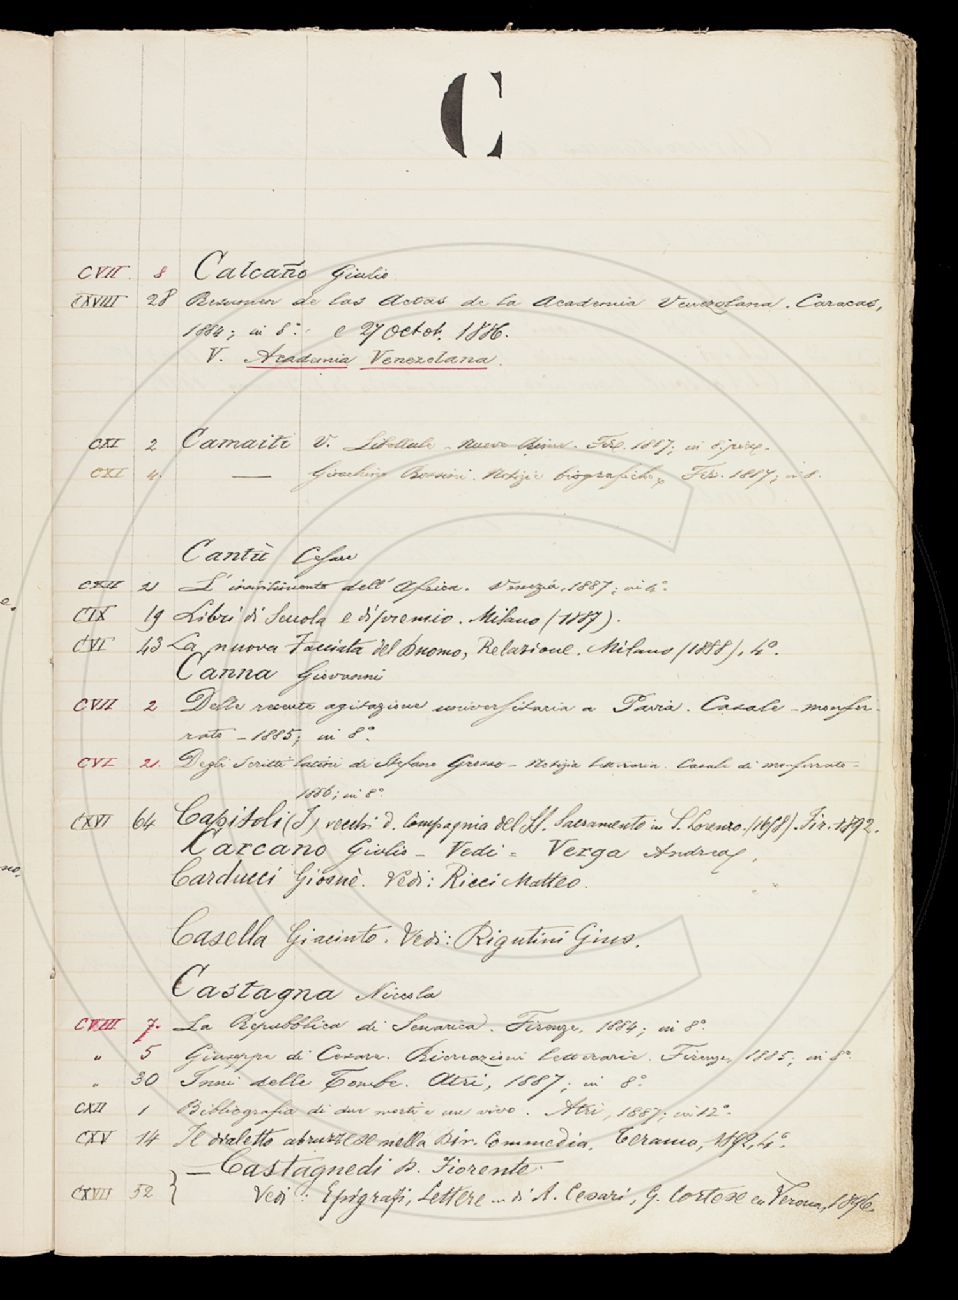 C
CVII 8 Calcaño Giulio
CXVIII 28 Resumen de las Actas de la Academia Venezolana. Caracas,
1884; in 8.° e 27 Octot. 1886.
V. Academia Venezolana.
CXI 2 Camaiti V. Libellule - Nuove Rime. Fir. 1887; in 8.° picc.
CXI 4. — Gioachino Rossini. Notizie biografiche, Fir. 1887; in 8.
Cantù Cesare
CXII 21 L'incivilimento dell'Africa. Venezia, 1887; in 4.°
CIX 19 Libri di Scuola e di premio. Milano (1887).
CVI 43 La nuova Facciata del Duomo, Relazione. Milano (1888), 4°.
Canna Giovanni
CVII 2 Delle recente agitazione universitaria a Pavia. Casale-monfer-
rato - 1885; in 8.°
CVI 21. Degli Scritti latini di Stefano Grosso - Notizia letteraria. Casale di monferrato -
1886; in 8.°
CXVI 64 Capitoli (I) vecchi d. Compagnia del SS. Sacramento in S. Lorenzo. (1658). Fir. 1892.
Carcano Giulio - Vedi = Verga Andrea,
Carducci Giosuè. Vedi: Ricci Matteo.
Casella Giacinto. Vedi: Rigutini Gius.
Castagna Nicola
CVIII 7. La Repubblica di Senarica. Firenze, 1884; in 8.°
" 5 Giuseppe di Cesare. Ricreazioni letterarie. Firenze, 1885; in 8.°
" 30 Inni delle Tombe. Atri, 1887; in 8.°
CXII 1 Bibliografia di due morti e un vivo. Atri, 1887; in 12.°
CXV 14 Il dialetto abruzzese nella Div. Commedia. Teramo, 1892, 4.°
— Castagnedi P. Fiorente
CXVII 52 } Vedi: Epigrafi, Lettere ... di A. Cesari, G. Cortese ec Verona, 1896.